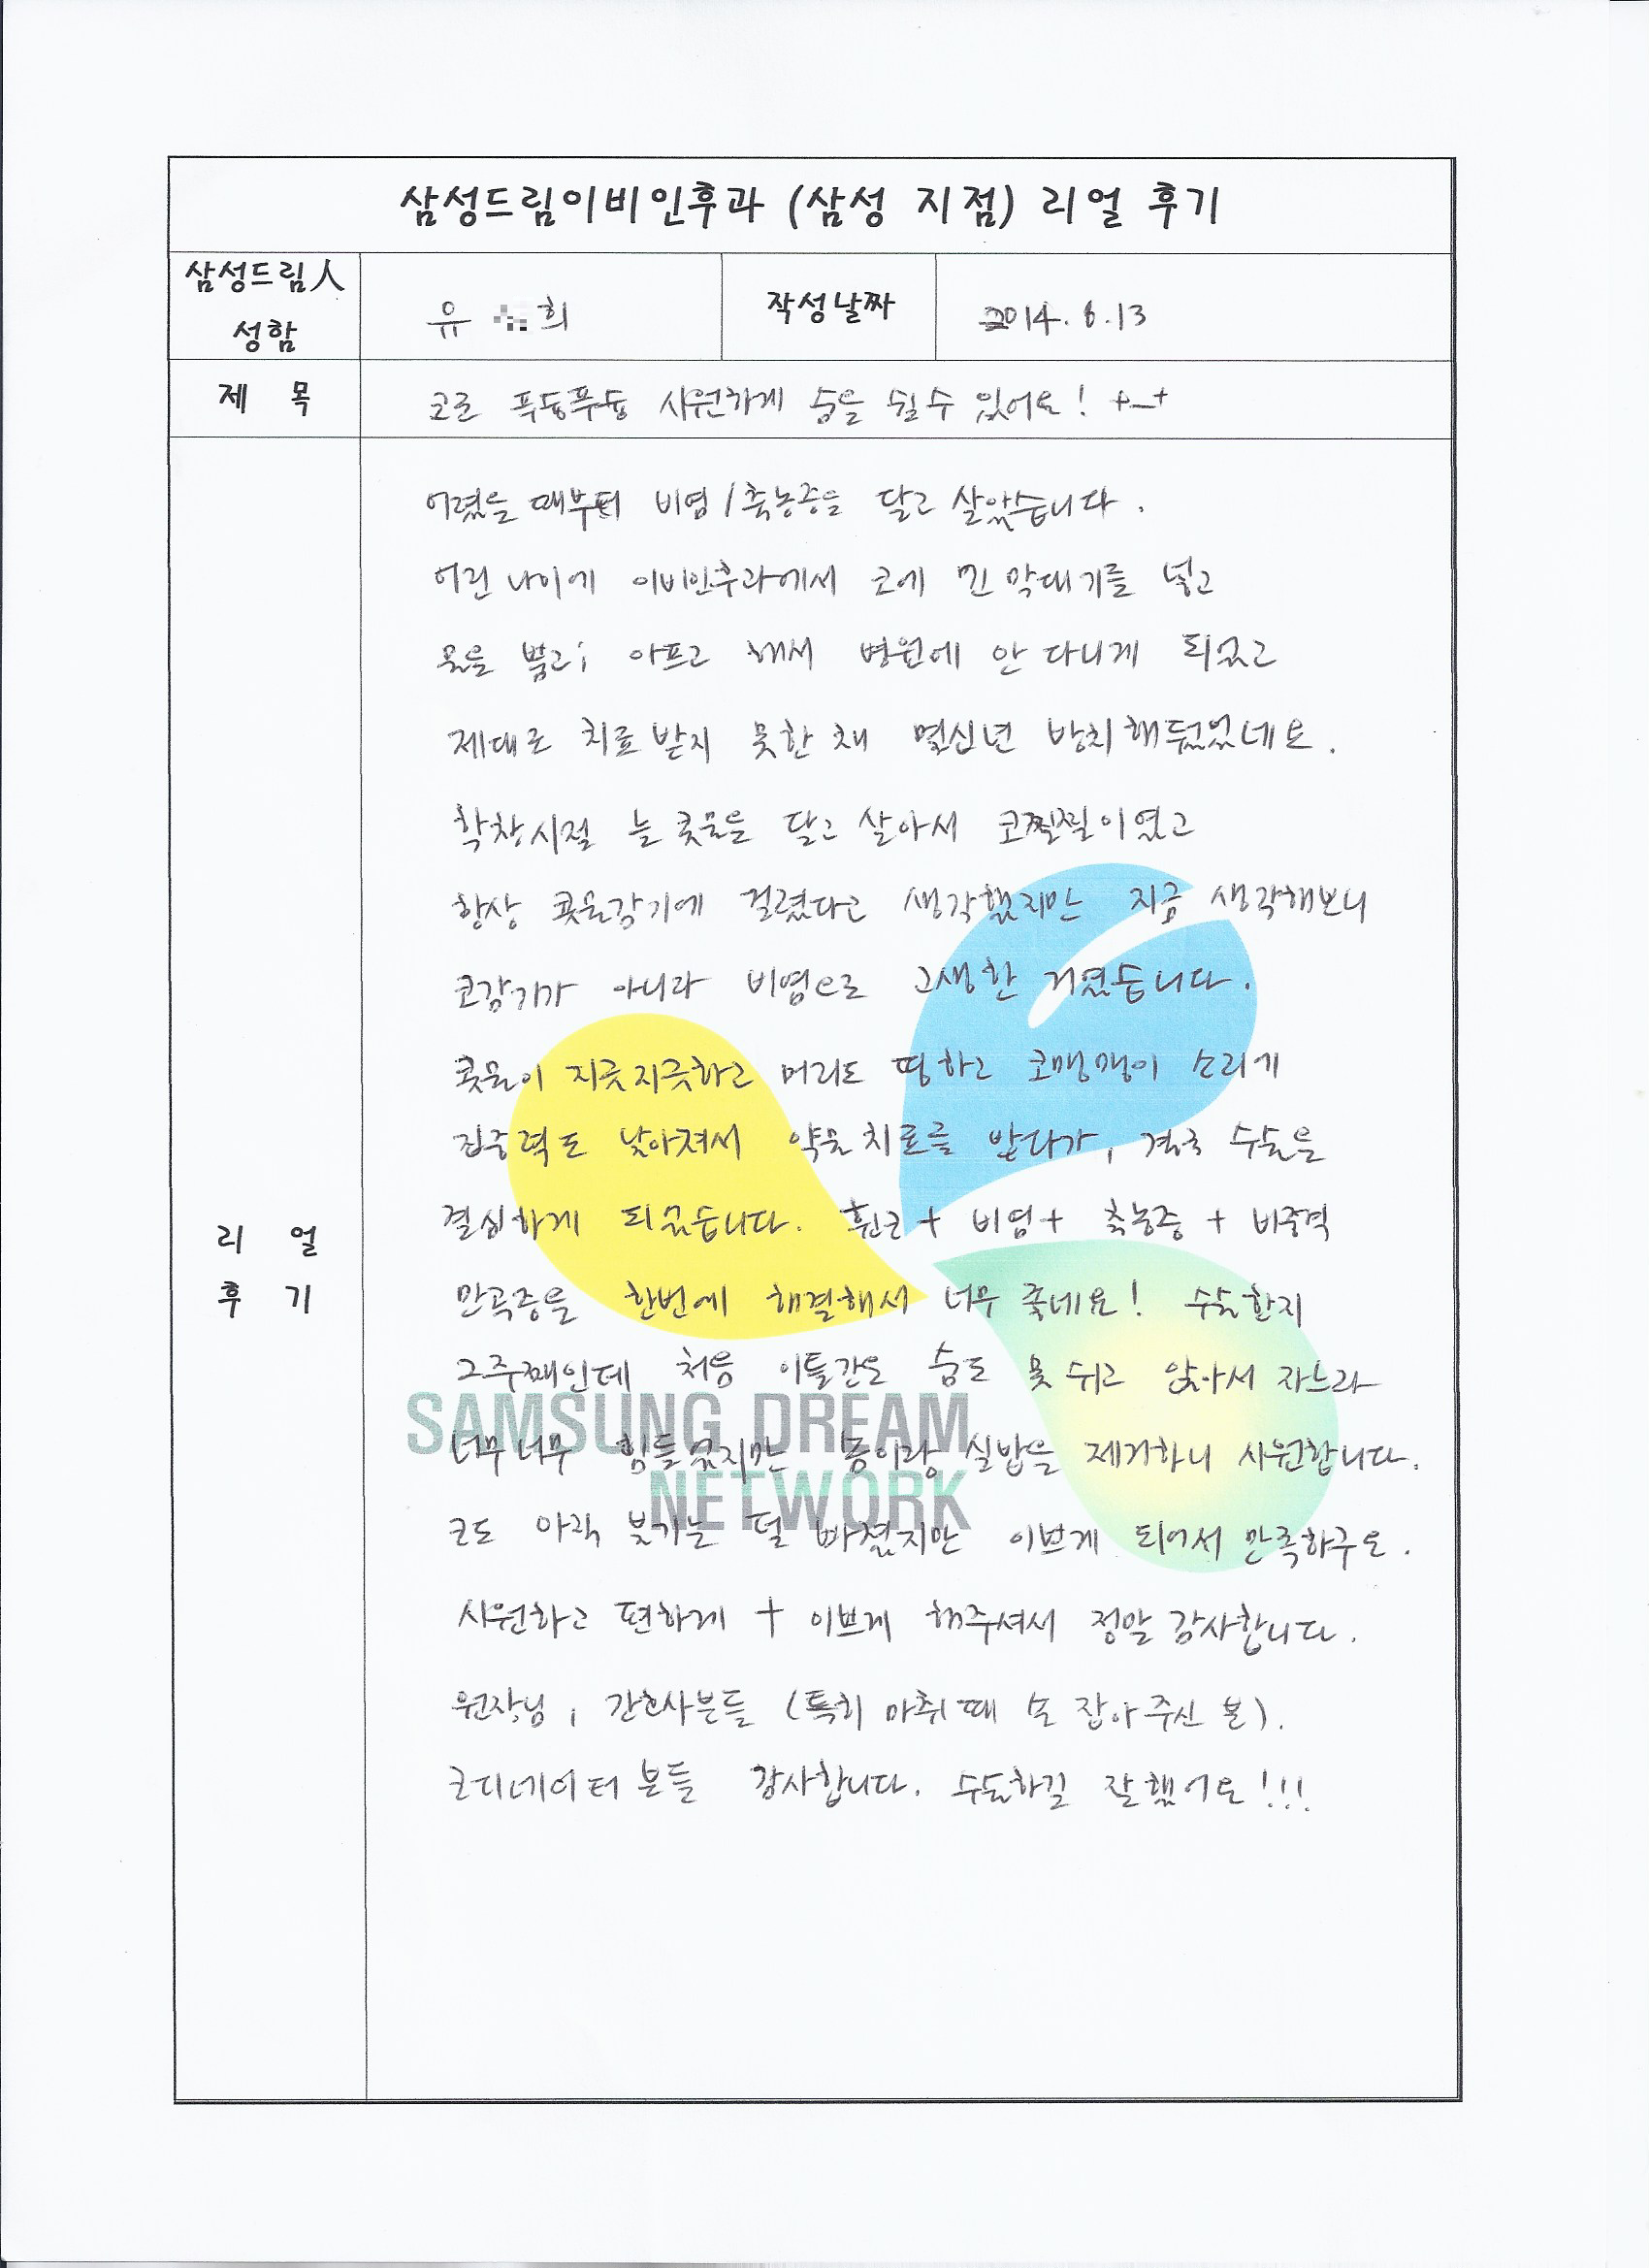 삼성드림이비인후과 (삼성 지점) 리얼 후기
삼성드림人
성함
유 희
작성날짜
2014. 6.13
제 목
코로 푸둥푸둥 시원하게 숨을 쉴 수 있어요! +_+
어렸을 때부터 비염/축농증을 달고 살았습니다.
어린 나이에 이비인후과에서 코에 긴 막대기를 넣고
물을 뿜고; 아프고 해서 병원에 안 다니게 되었고
제대로 치료 받지 못한 채 몇십년 방치해뒀었네요.
학창시절 늘 콧물을 달고 살아서 코찔찔이였고
항상 콧물감기에 걸렸다고 생각했지만 지금 생각해보니
코감기가 아니라 비염으로 고생한 거였습니다.
콧물이 지긋지긋하고 머리도 띵하고 코맹맹이 소리에
집중력도 낮아져서 약물치료를 받다가, 결국 수술을
결심하게 되었습니다. 휜코 + 비염 + 축농증 + 비중격
만곡증을 한번에 해결해서 너무 좋네요! 수술한지
2주째인데 처음 이틀간은 숨도 못 쉬고 앉아서 자느라
너무너무 힘들었지만 솜이랑 실밥을 제거하니 시원합니다.
코도 아직 붓기는 덜 빠졌지만 이쁘게 되어서 만족하구요.
시원하고 편하게 + 이쁘게 해주셔서 정말 감사합니다.
원장님, 간호사분들 (특히 마취때 손 잡아주신 분).
코디네이터 분들 감사합니다. 수술하길 잘했어요!!!
리 얼
후 기
SAMSUNG DREAM
NETWORK